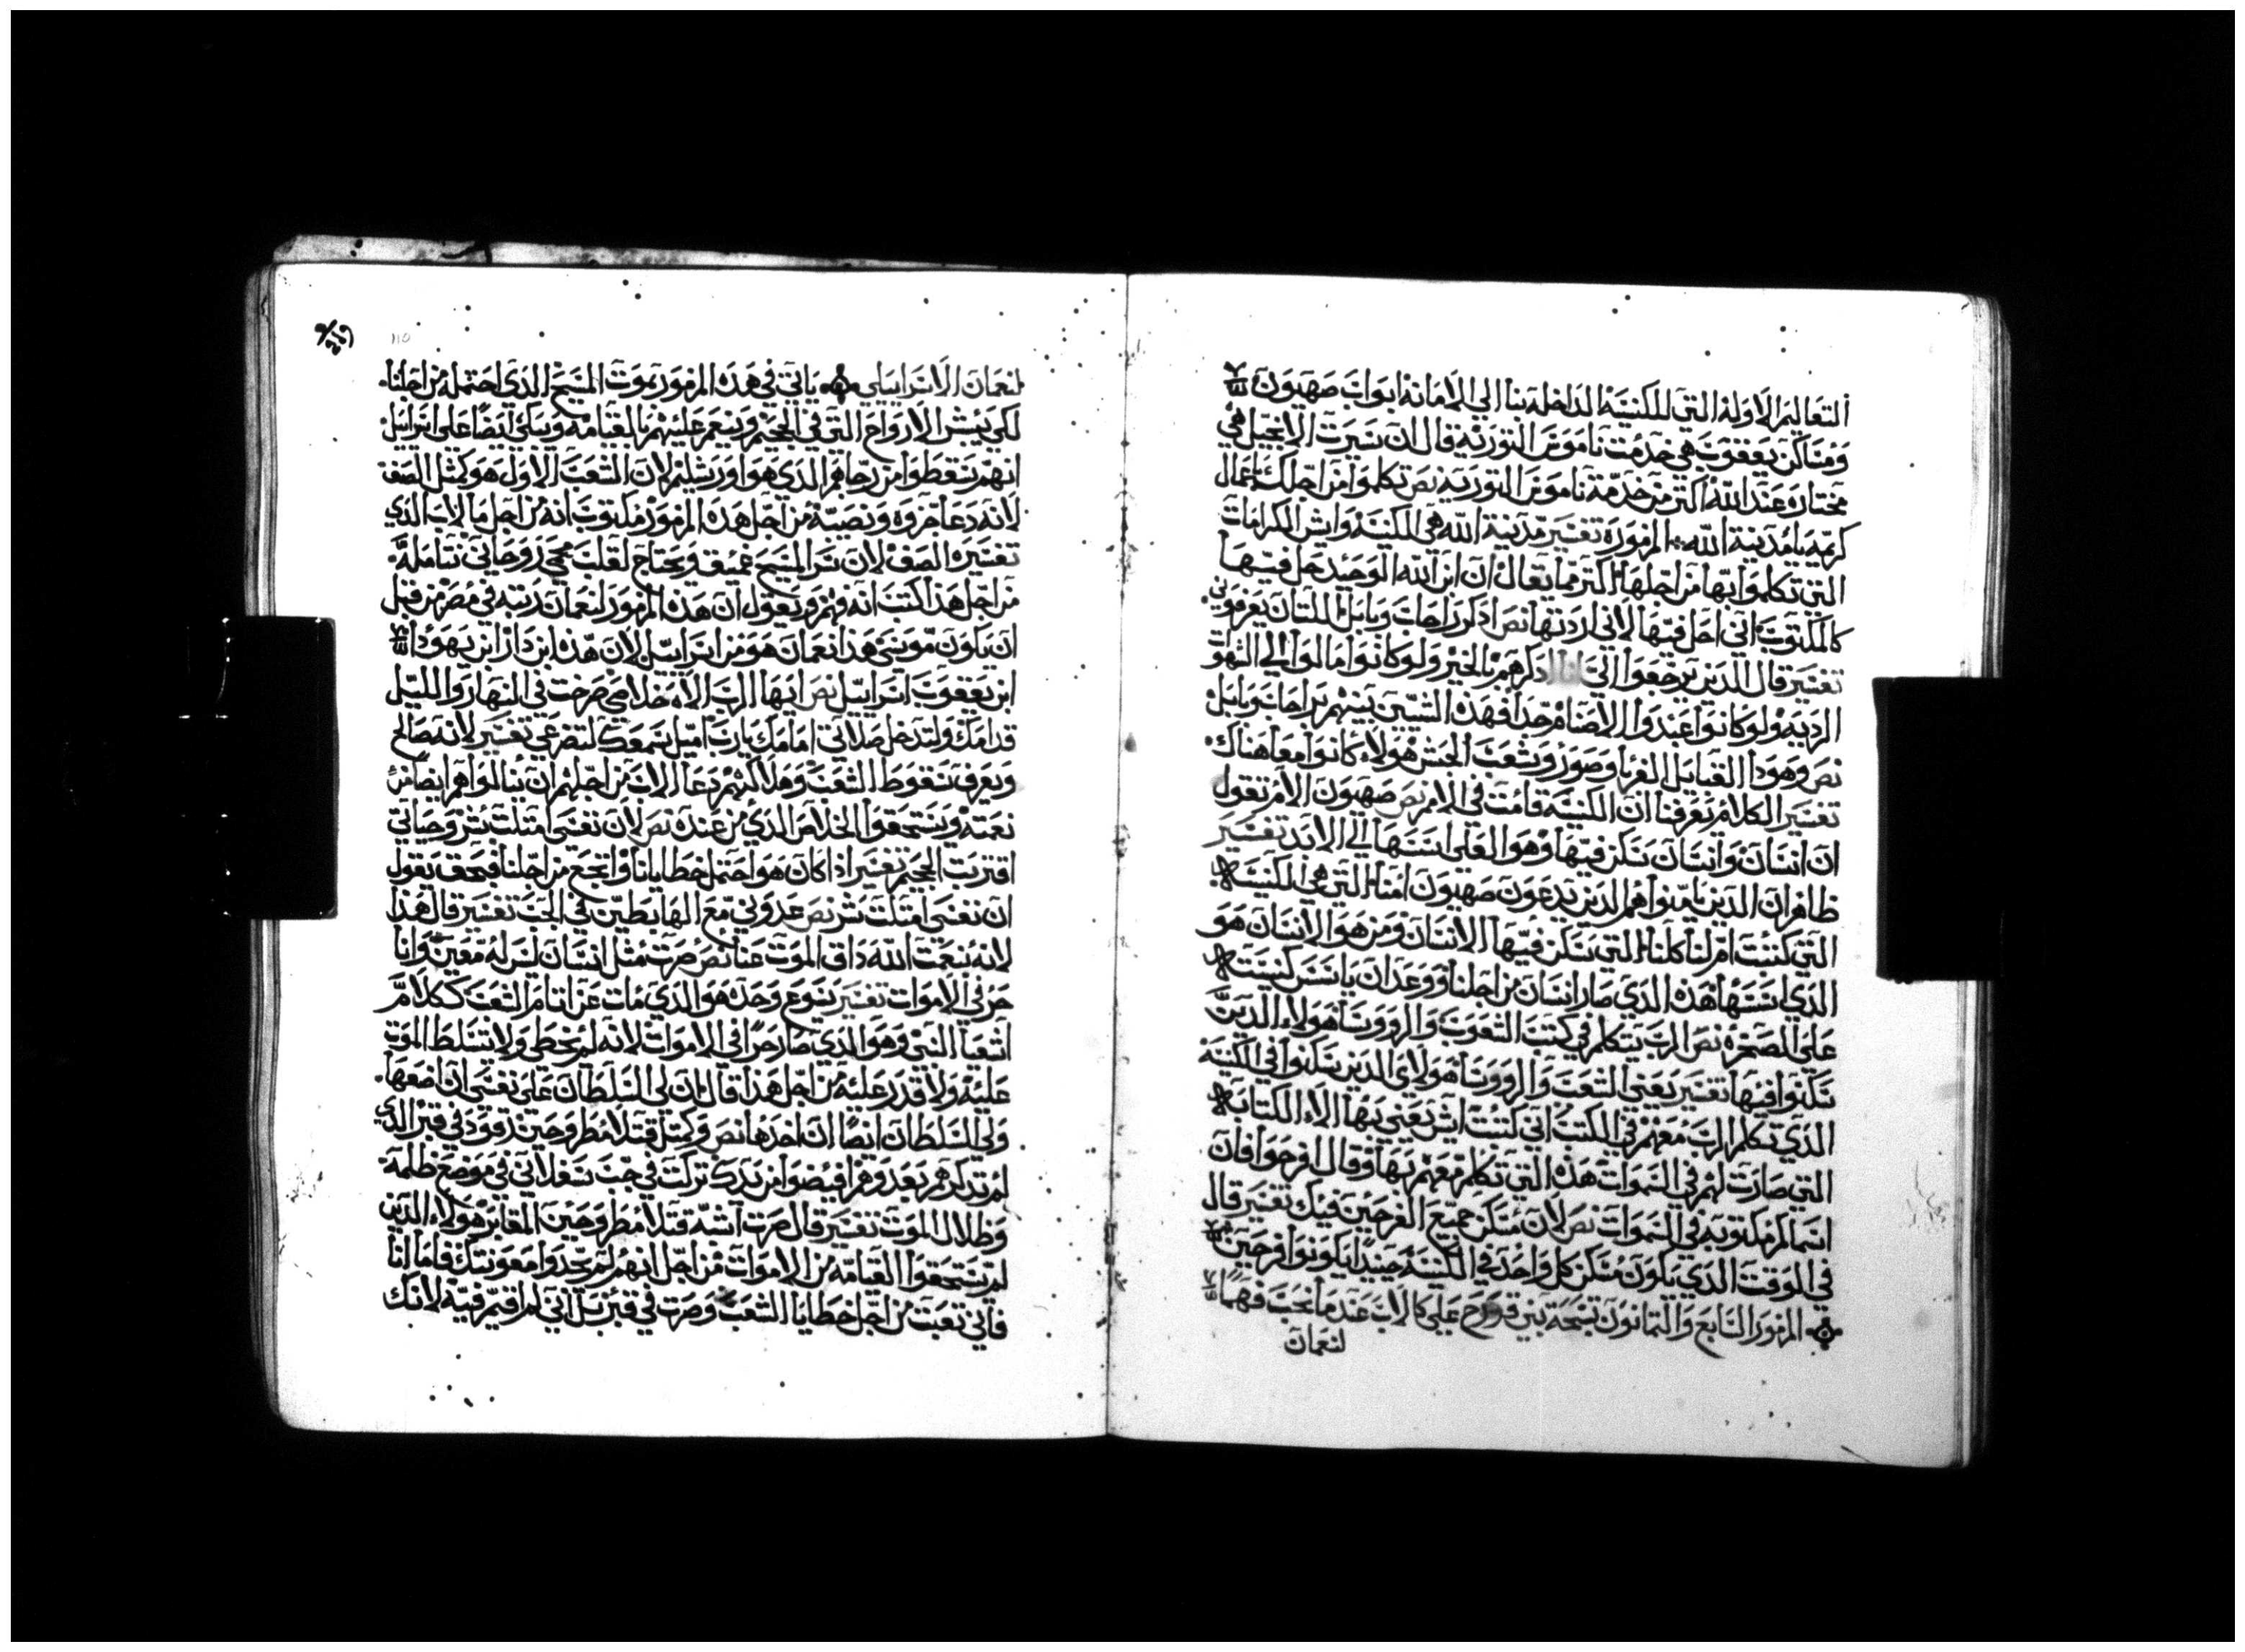 ألتعاليم الاوله التي للكنيسه الداخله بنا الي الامانه ابواب صهيون
ومساكن يعقوب هي خدمت ناموس التوريه قال ان سيرت الانجيل هي
مختاره عند الله اكتر من خدمة ناموس التوريه نص تكلموا من اجلك اعمال
كريمه يا مدينة الله المزمور تفسير مدينة الله هي الكنيسه وايش الكرامات
التي تكلموا بها من اجلها اكتر مما يقال ان ابن الله الوحيد حل فيها
كالمكتوب اني احل فيها لاني اردتها نص ادكر راحاب وبابل اللتان يعرفوني
تفسير قال الدين يرجعوا الي انا ادكرهم بالخير ولو كانوا مالوا الي الشهوه
الرديه ولو كانوا عبدوا الاصنام جدا فهده السيين يشبههم براحاب وبابل
نص وهودا القبايل الغربا وصور وشعب الحبش هولاء كانوا معا هناك
تفسير الكلام يعرفنا ان الكنيسه قامت في الامم نص صهيون الام تقول
ان انسان وانسان يسكن فيها وهو العلي اسسها الي الابد تفسير
ظاهر ان الدين يامنوا هم الدين يدعون صهيون امنا التي هي الكنيسه
التي كتبت ام لنا كلنا التي يسكن فيها الانسان ومن هو الانسان هو
الدي اسسها هده الدي صار انسان من اجلنا ووعد ان ياسس كنيسته
علي الصخره نص الرب يتكلم في كتب الشعوب والروسا هولاء الدين
سكنوا فيها تفسير يعني الشعب والروسا هولاي الدين يسكنوا في الكنيسه
الدي تكلم الرب معهم في المكتب اي كتبت ايش يعني بها الا الكتابه
التي صارت لهم في السموات هده التي تكلم معهم بها وقال افرحوا فان
اسماكم مكتوبه في السموات نص لان مسكن جميع الفرحين فيك تفسير قال
في الوقت الدي يكون مسكن كل واحد في الكنيسه حينيدا يكونوا فرحين
المزمور السابع والتمانون تسبحة بني قورح علي كالاب عندما نحب فهما
لنعمان
لنعمان الاسراييلي ياتي في هده المزمور بموت المسيح الدي احتمله من اجلنا
لكي يبشر الارواح التي في الجحيم وينعم عليهم بالقيامه ويبكي ايضا علي اسراييل
انهم يسقطوا من رجاهم الدي هو اورشليم لان الشعب الاول هو كمثل الصف
لانه دعا جزوه ونصيبه من اجل هده المزمور مكتوب انه من اجل مالاب الدي
تفسيره الصف لان سر المسيح عميقه ويحتاج لقلب محجر روحاني نتامله
من اجل هدا كتب انه فهم ويقول ان هده المزمور لنعمان رتبه في مصر من قبل
ان يكون موسي هدا نعمان هو من اسراييل لان هده ابن دار ابن يهودا
ابن يعقوب اسراييل نص ايها الرب الاه خلاصي صرخت في النهار والليل
قدامك ولتدخل صلاتي امامك يارب اميل سمعك لتضرعي تفسير لانه صالح
ويعرف سقوط الشعب وهلاكهم دعا الاب من اجلهم ان ينالوا هم ايضا من
نعمته ويستحقوا الخلاص الدي من عنده نص لان نفسي امتلت شر وحياتي
اقتربت الجحيم تفسير ادا كان هو احتمل خطايانا واتجع من اجلنا فبحق يقول
ان نفسي امتلت شر نص عدوني مع الهابطين في الجب تفسير قال هدا
لانه بنعمت الله داق الموت عنا نص صرت مثل انسان ليس له معين وانا
حر في الاموات تفسير يسوع وحده هو الدي مات عن اتام الشعب ككلام
اشعيا النبي وهو الدي صار حرا في الاموات لانه لم يخطي ولا تسلط الموت
عليه ولا قدر عليه من اجل هدا قال ان لي السلطان علي نفسي ان اضعها
ولي السلطان ايضا ان اخدها نص وكمتل قتلا مطروحين رقود في قبر الدي
لم تدكرهم بعد وهم اقيضوا من يدك تركت في جب سفلاني في موضع ظلمه
وظلال الموت تفسير قال صرت اشبه قتلا مطروحين المقابر هولاء الدين
لم يستحقوا القيامه من الاموات من اجل انهم لم يجدوا معونتك فاما انا
فاني تعبت من اجل خطايا الشعب وصرت في قبر بل اني لم اقيم فيه لانك